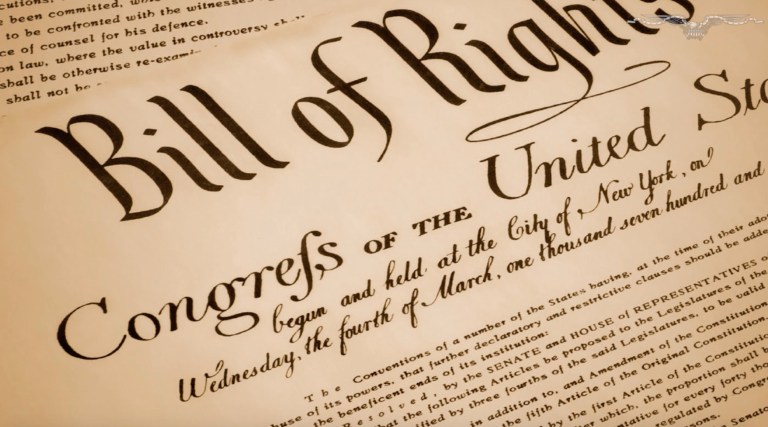 cutions,
been committed, which
to be confronted with the witnesses
ce of counsel for his defence.
on law, where the value in controversy shall
shall be otherwise re-exami
shall not be
Bill of Rights
Congreſs OF THE United Sta
begun and held at the City of New York, on
Wednesday, the fourth of March, one thousand seven hundred and
The Conventions of a number of the States having, at the time of their ado
buse of its powers, that further declaratory and restrictive clauses should be adde
the beneficent ends of its institution:
Resolved, by the SENATE and HOUSE of REPRESENTATIVES o
that the following Articles be proposed to the Legislatures of the
ified by three fourths of the said Legislatures, to be valid
in addition to, and Amendment of the Constitution
the fifth Article of the Original Constitution.
by the first Article of the Constitutio
ter which, the proportion shall b
entative for every forty thou
regulated by Congr
Senato